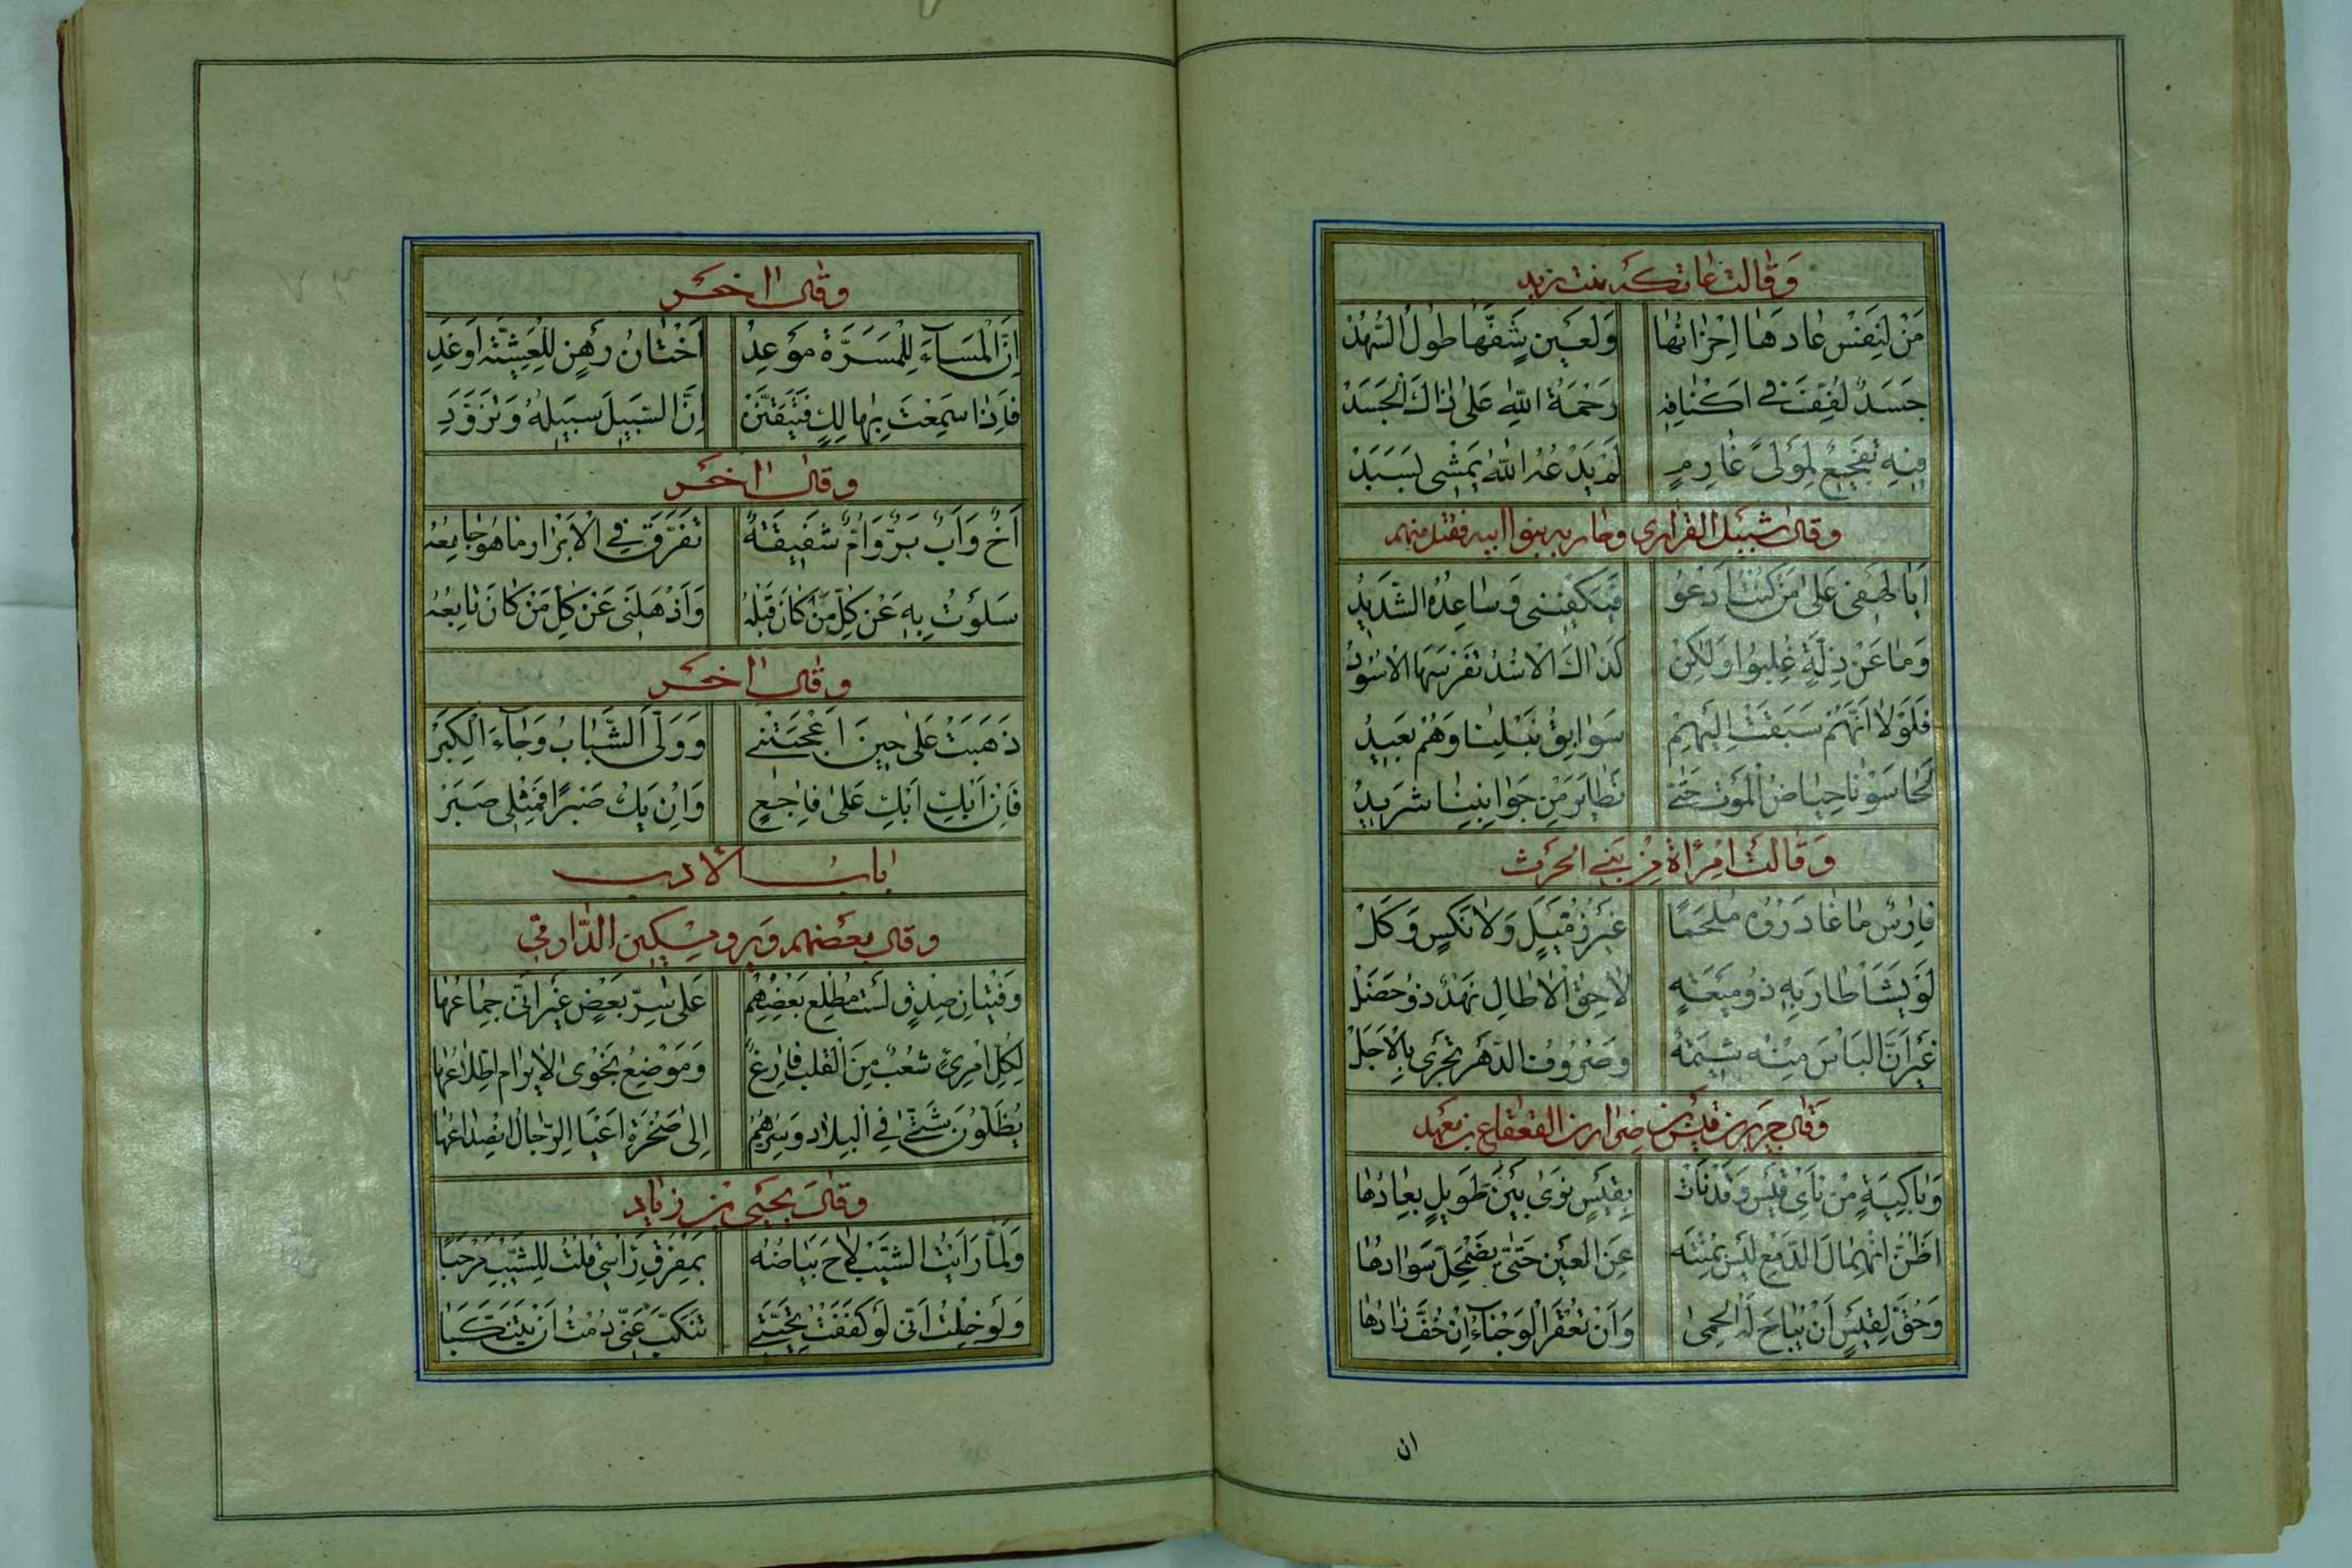 وَقَالَت عاتكة بنت زيد
مَنْ لِنَفْسٍ عَادَهَا اِحْزَانُهَا وَلِعَيْنٍ شَفَّهَا طُولُ السُّهُدْ
جَسَدٌ لُفِّفَ فِي اَكْفَانِهِ رَحْمَةُ اللّٰهِ عَلٰى ذَاكَ الْجَسَدْ
فِيهِ تَفْجِيعٌ لِمَوْلًى غَارِمٍ لَمْ يَدَعْهُ اللّٰهُ يَمْشِى بِسَبَدْ
وقال شبيل الفزارى وحاربه بنوا ابيه فقتل منهم
اَيَا لَهْفِى عَلٰى مَنْ كُنْتُ اَدْعُو فَيَكْفِينِى وَسَاعِدُهُ الشَّدِيدُ
وَمَا عَنْ ذِلَّةٍ غُلِبُوا وَلٰكِنْ كَذَاكَ الْاُسْدُ تَفْرِسُهَا الْاُسُودُ
فَلَوْلَا اَنَّهُمْ سَبَقَتْ اِلَيْهِمْ سَوَابِقُ نَبْلِنَا وَهُمْ بَعِيدُ
لَحَاسَوْنَا حِيَاضَ الْمَوْتِ حَتّٰى تَطَايَرَ مِنْ جَوَانِبِنَا شَرِيدُ
وَقَالَتْ اِمْرَاَةٌ مِنْ بَنِى الحرث
فَارِسٌ مَا غَادَرُوهُ مُلْحَمًا غَيْرَ زُمَّيْلٍ وَلَا نَكْسٍ وَكَلْ
لَوْ يَشَا طَارَ بِهِ ذُو مَيْعَةٍ لَاحِقُ الْاٰطَالِ نَهْدٌ ذُو خُصَلْ
غَيْرَ اَنَّ الْبَاْسَ مِنْهُ شِيمَةٌ وَصُرُوفُ الدَّهْرِ تَجْرِى بِالْاَجَلْ
وَقَالَ جرير بن قيس بن ضرار بن القعقاع بن معبد
وَبَاكِيَةٍ مِنْ نَاْىِ قَيْسٍ وَقَدْ نَاَتْ بِقَيْسٍ نَوٰى بَيْنٍ طَوِيلٍ بِعَادُهَا
اَظُنُّ انْهِمَالَ الدَّمْعِ لَيْسَ بِمُنْتَهٍ عَنِ الْعَيْنِ حَتّٰى يَضْمَحِلَّ سَوَادُهَا
وَحُقَّ لِقَيْسٍ اَنْ يُبَاحَ لَهُ الْحِمٰى وَاَنْ تُعْقَرَ الْوَجْنَاءُ اِنْ خَفَّ زَادُهَا
ان
وقال اخر
اِنَّ الْمَسَاءَةَ لِلْمَسَرَّةِ مَوْعِدٌ اُخْتَانِ رَهْنٌ لِلْعَشِيَّةِ اَوْ غَدِ
فَاِذَا سَمِعْتَ بِهَالِكٍ فَتَيَقَّنَنْ اِنَّ السَّبِيلَ سَبِيلُهُ وَتَزَوَّدِ
وقال اخر
اَخٌ وَاَبٌ بَرٌّ وَاُمٌّ شَفِيقَةٌ تَفَرَّقَ فِي الْاَبْرَارِ مَا هُوَ جَامِعُهُ
سَلَوْتُ بِهِ عَنْ كُلِّ مَنْ كَانَ قَبْلَهُ وَاَذْهَلَنِى عَنْ كُلِّ مَنْ كَانَ تَابِعُهُ
وقال اخر
ذَهَبْتَ عَلٰى حِينَ اَعْجَبْتَنِى وَوَلَّى الشَّبَابُ وَجَاءَ الْكِبَرْ
فَاِنْ اَبْكِ اَبْكِ عَلٰى فَاجِعٍ وَاِنْ يَكُ صَبْرًا فَمِثْلِى صَبَرْ
باب الادب
وقال بعضهم ويرو مسكين الدارمى
وَفِتْيَانِ صِدْقٍ لَسْتُ مُطْلِعَ بَعْضِهِمْ عَلٰى سِرِّ بَعْضٍ غَيْرَ اَنِّى جِمَاعُهَا
لِكُلِّ امْرِئٍ شِعْبٌ مِنَ الْقَلْبِ فَارِغٌ وَمَوْضِعُ نَجْوٰى لَا يُرَامُ اطِّلَاعُهَا
يَظَلُّونَ شَتّٰى فِي الْبِلَادِ وَسِرُّهُمْ اِلٰى صَخْرَةٍ اَعْيَا الرِّجَالَ انْصِدَاعُهَا
وقال يحيى بن زياد
وَلَمَّا رَاَيْتُ الشَّيْبَ لَاحَ بَيَاضُهُ بِمَفْرِقِ رَاْسِى قُلْتُ لِلشَّيْبِ مَرْحَبًا
وَلَوْ خِلْتُ اَنِّى لَوْ كَفَفْتُ تَحِيَّتِى تَنَكَّبَ عَنِّى رُمْتُ اَنْ يَتَنَكَّبَا